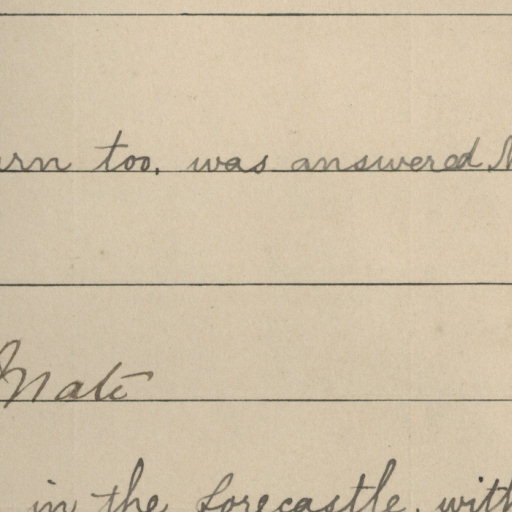 too, was answered
Mate
in the forecastle, with